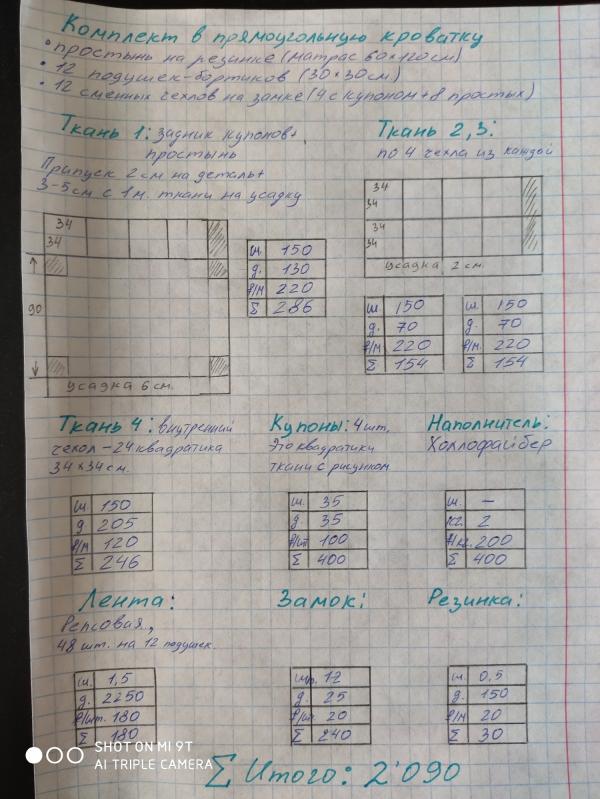 Комплект в прямоугольную кроватку
• простынь на резинке (матрас 60×120см)
• 12 подушек-бортиков (30×30см)
• 12 сменных чехлов на замке (4 с купоном + 8 простых)
Ткань 1: задник купонов +
простынь
Припуск 2 см на деталь +
3-5см с 1 м. ткани на усадку
34
34
90
усадка 6 см.
ш. 150
д. 130
₽/м 220
Σ 286
Ткань 2,3:
по 4 чехла из каждой
34
34
34
34
усадка 2 см.
ш. 150
д. 70
₽/м. 220
Σ 154
ш. 150
д. 70
₽/м 220
Σ 154
Ткань 4: внутренний
чехол – 24 квадратика
34×34см.
ш. 150
д 205
₽/м 120
Σ 246
Купоны: 4 шт.
Это квадратики
ткани с рисунком
ш. 35
д 35
₽/шт 100
Σ 400
Наполнитель:
Холлофайбер
ш. –
кг. 2
₽/кг. 200
Σ 400
Лента:
Репсовая,
48 шт. на 12 подушек.
ш. 1,5
д. 2250
₽/шт. 180
Σ 180
Замок:
шт. 12
д 25
₽/шт. 20
Σ 240
Резинка:
ш. 0,5
д. 150
₽/м 20
Σ 30
Σ Итого: 2'090
SHOT ON MI 9T
AI TRIPLE CAMERA